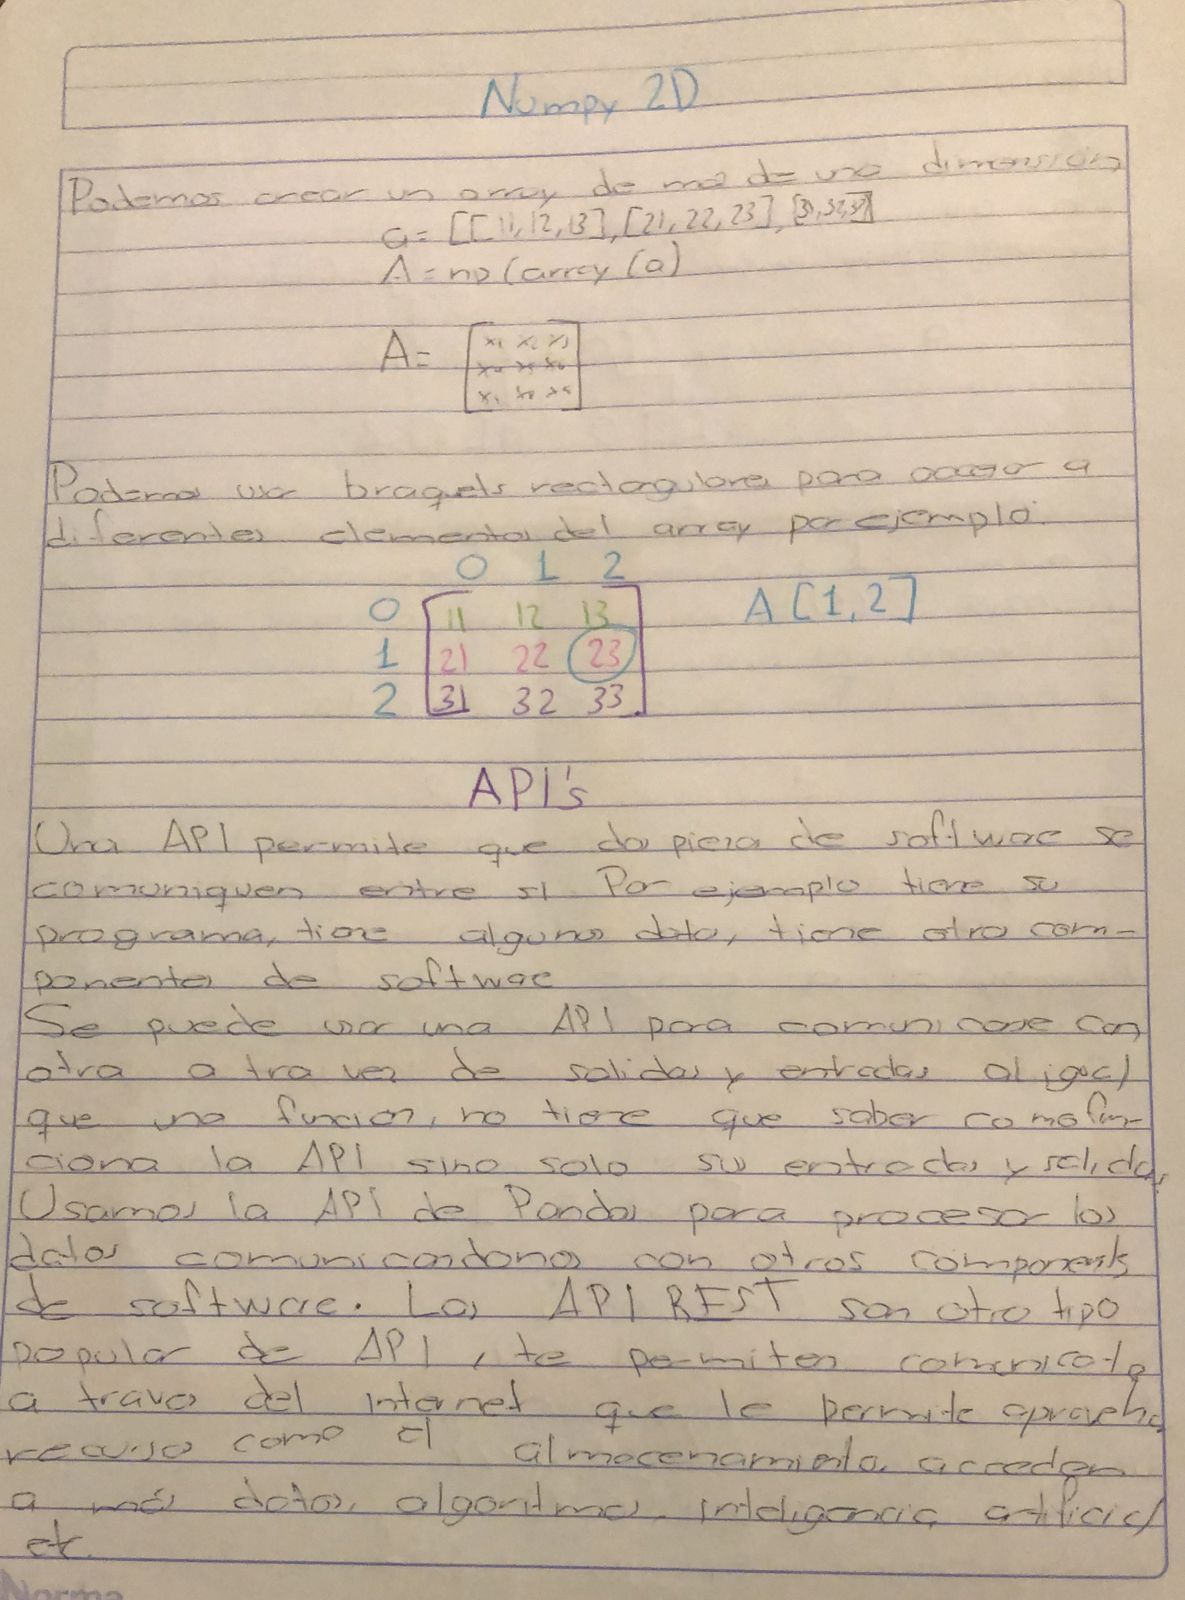 Numpy 2D
Podemos crear un array de mas de una dimensión
a= [[11,12,13],[21,22,23],[31,32,33]]
A=np(array(a)
A= [x1 x2 x3
x4 x5 x6
x7 x8 x9]
Podemos usar braquets rectagulares para acceder a
diferentes elementos del array por ejemplo:
0 1 2
0 [11 12 13 A[1,2]
1 21 22 23
2 31 32 33]
API's
Una API permite que dos pieza de software se
comuniquen entre si Por ejemplo tiene su
programa, tiene algunos datos, tiene otro com-
ponentes de software
Se puede usar una API para comunicarse con
otra a tra ves de salidas y entradas al igual
que una funcion, no tiene que saber como fun-
ciona la API sino solo sus entradas y salidas
Usamos la API de Pandas para procesar los
datos comunicardonos con otros components
de software. Las API REST son otro tipo
popular de API, te permiten comunicarte
a traves del internet que le permite aprovechar
recurso como el almacenamiento, acceder
a más datos, algoritmos, inteligencia artificial
etc.
Norma